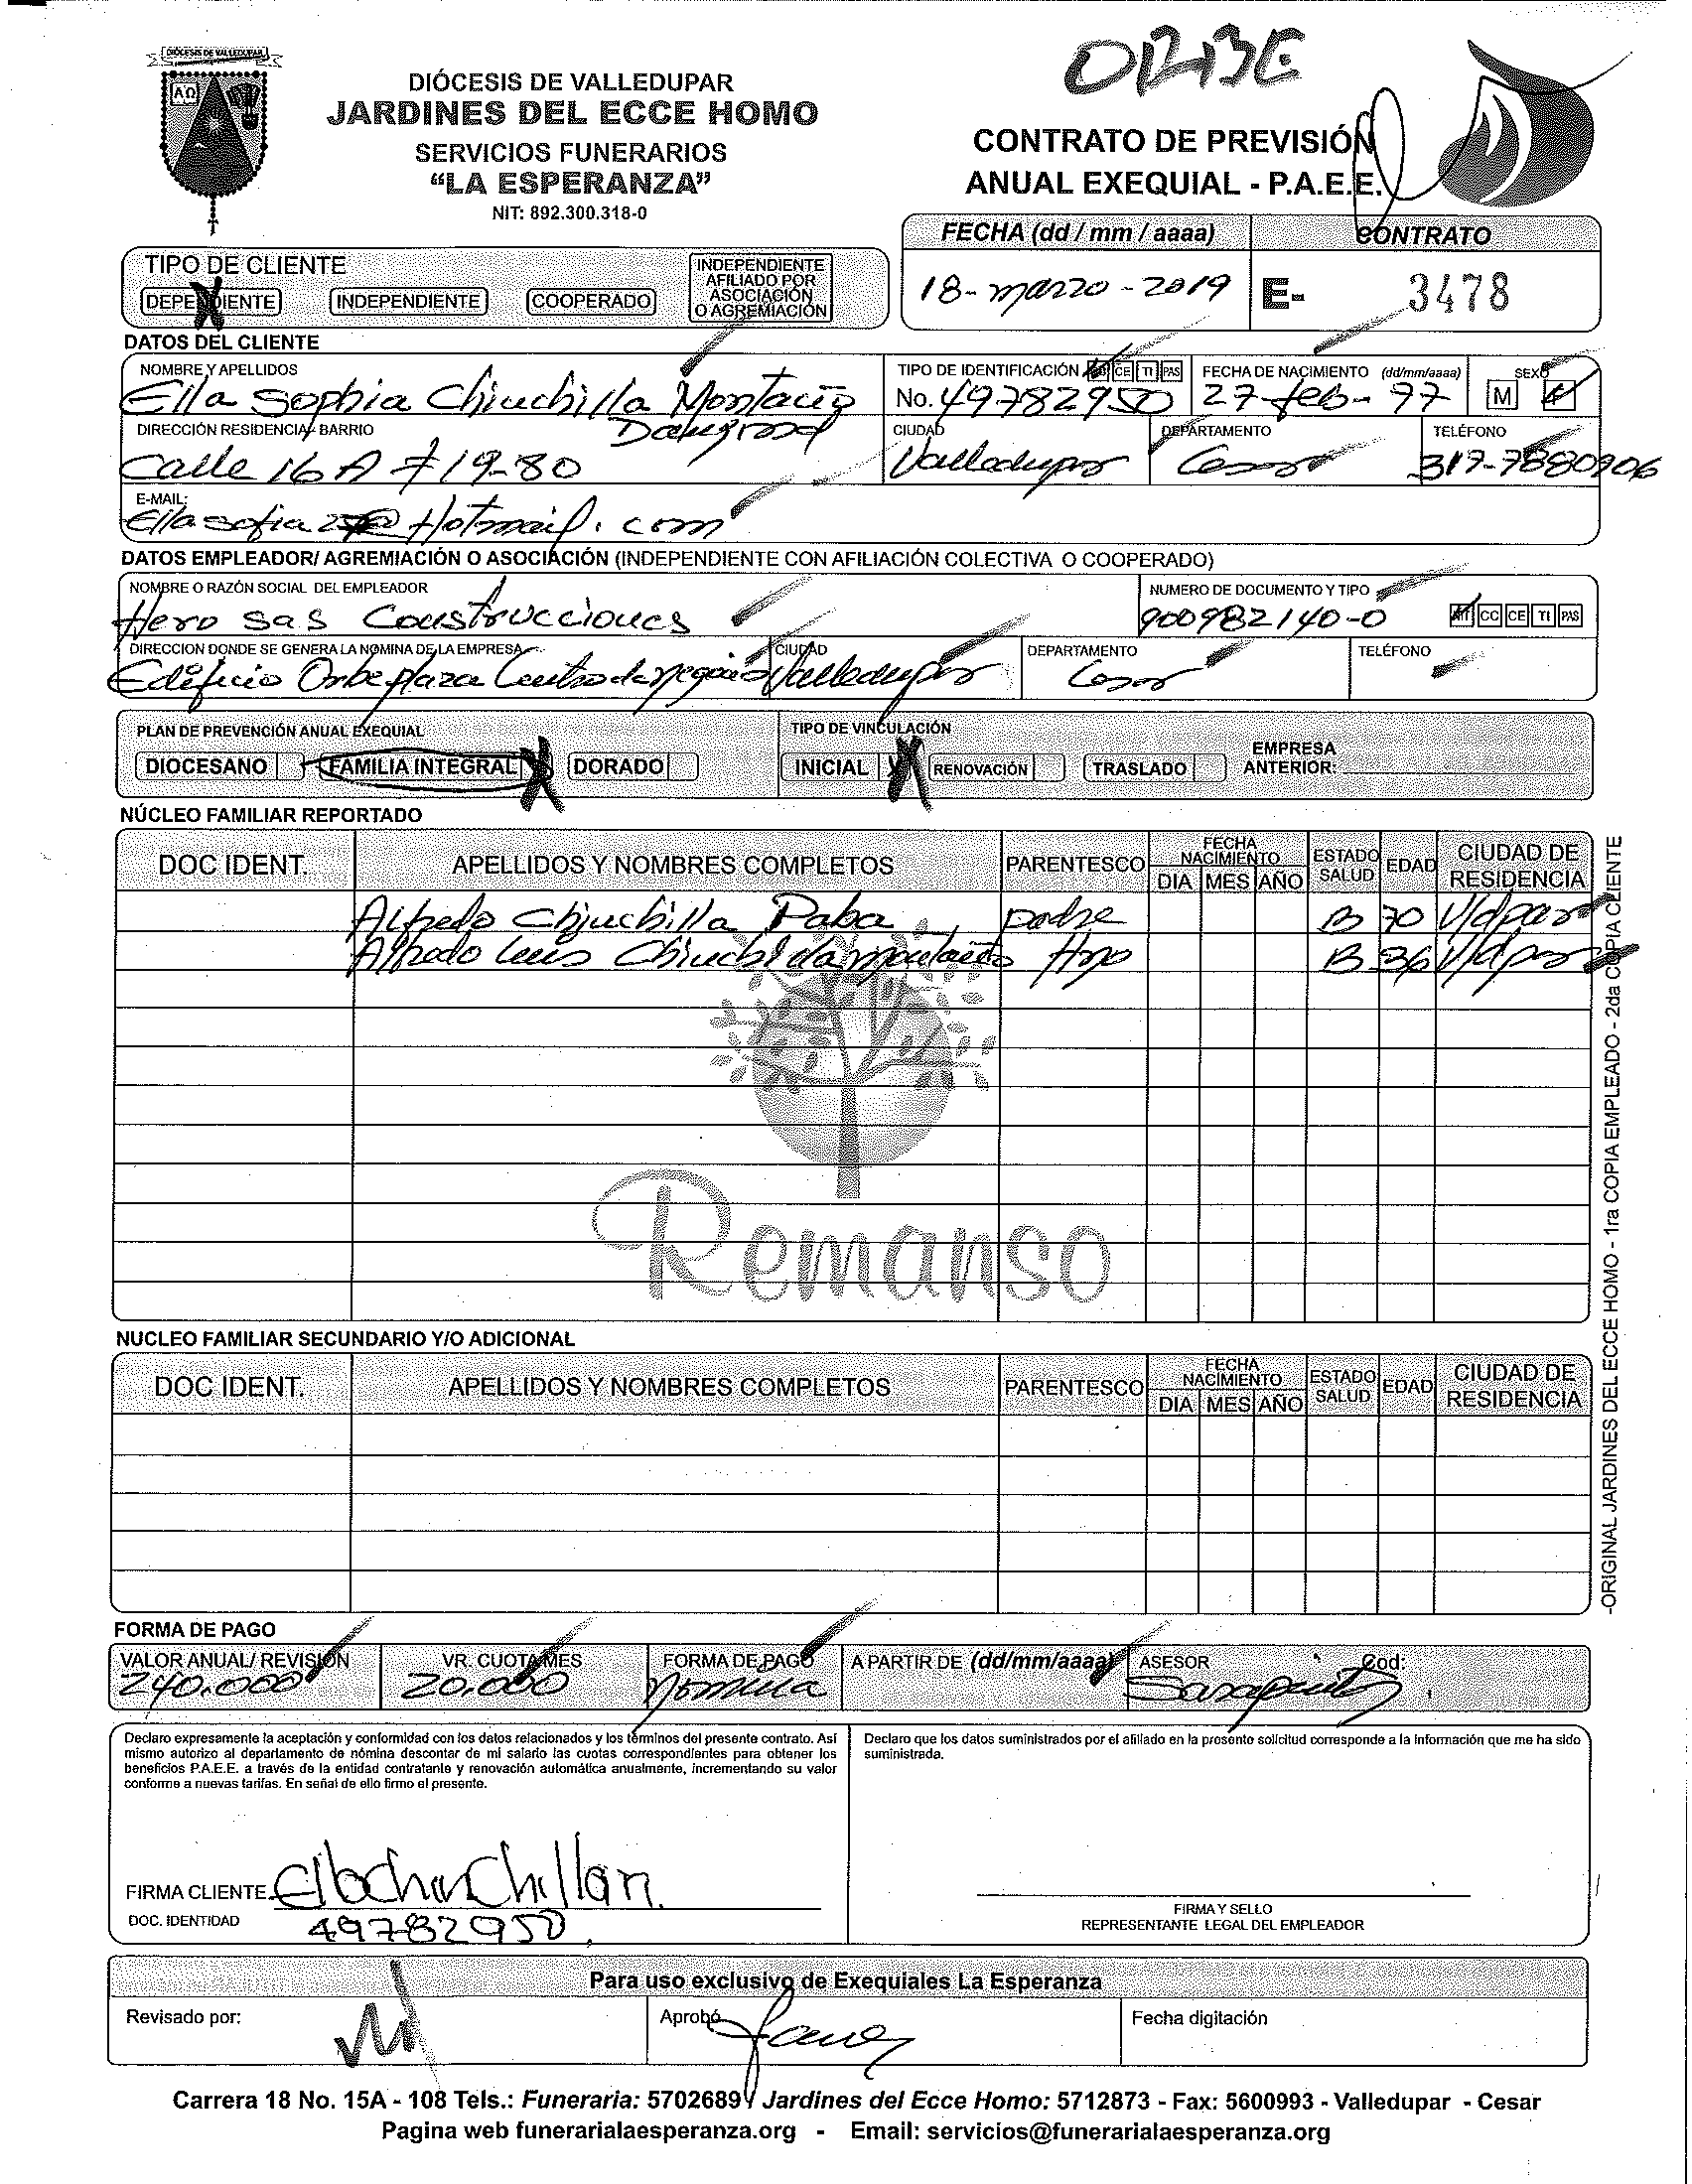 DIÓCESIS DE VALLEDUPAR
ΑΩ
DIÓCESIS DE VALLEDUPAR
JARDINES DEL ECCE HOMO
SERVICIOS FUNERARIOS
“LA ESPERANZA”
NIT: 892.300.318-0
ORBE
CONTRATO DE PREVISIÓN
ANUAL EXEQUIAL - P.A.E.E.
FECHA (dd / mm / aaaa) CONTRATO
18-marzo-2019 E- 3478
TIPO DE CLIENTE
DEPENDIENTE INDEPENDIENTE COOPERADO INDEPENDIENTE AFILIADO POR ASOCIACIÓN O AGREMIACIÓN
DATOS DEL CLIENTE
NOMBRE Y APELLIDOS TIPO DE IDENTIFICACIÓN CE TI PAS FECHA DE NACIMIENTO (dd/mm/aaaa) SEXO
Ella Sophia Chinchilla Montaño No. 49782950 27-feb-77 M
DIRECCIÓN RESIDENCIA/ BARRIO CIUDAD DEPARTAMENTO TELÉFONO
Calle 16 A # 19-80 Valledupar Cesar 317-7880906
E-MAIL:
Ellasofia27@Hotmail.com
DATOS EMPLEADOR/ AGREMIACIÓN O ASOCIACIÓN (INDEPENDIENTE CON AFILIACIÓN COLECTIVA O COOPERADO)
NOMBRE O RAZÓN SOCIAL DEL EMPLEADOR NUMERO DE DOCUMENTO Y TIPO
Hero sas Construcciones 900982140-0 NIT CC CE TI PAS
DIRECCION DONDE SE GENERA LA NOMINA DE LA EMPRESA CIUDAD DEPARTAMENTO TELÉFONO
Edificio Orbe plaza Centro de negocios Valledupar Cesar
PLAN DE PREVENCIÓN ANUAL EXEQUIAL TIPO DE VINCULACIÓN
DIOCESANO FAMILIA INTEGRAL X DORADO INICIAL X RENOVACIÓN TRASLADO EMPRESA ANTERIOR:
NÚCLEO FAMILIAR REPORTADO
DOC IDENT. APELLIDOS Y NOMBRES COMPLETOS PARENTESCO FECHA NACIMIENTO DIA MES AÑO ESTADO SALUD EDAD CIUDAD DE RESIDENCIA
Alfredo Chinchilla Paba padre B 70 V/dpar
Alfredo Luis Chinchilla montaño Hno B 36 V/dpar
Remanso
NUCLEO FAMILIAR SECUNDARIO Y/O ADICIONAL
DOC IDENT. APELLIDOS Y NOMBRES COMPLETOS PARENTESCO FECHA NACIMIENTO DIA MES AÑO ESTADO SALUD EDAD CIUDAD DE RESIDENCIA
-ORIGINAL JARDINES DEL ECCE HOMO - 1ra COPIA EMPLEADO - 2da COPIA CLIENTE
FORMA DE PAGO
VALOR ANUAL/ REVISIÓN VR. CUOTA/MES FORMA DE PAGO A PARTIR DE (dd/mm/aaaa) ASESOR Cod:
240.000 20.000 Nomina
Declaro expresamente la aceptación y conformidad con los datos relacionados y los términos del presente contrato. Así
mismo autorizo al departamento de nómina descontar de mi salario las cuotas correspondientes para obtener los
beneficios P.A.E.E. a través de la entidad contratante y renovación automática anualmente, incrementando su valor
conforme a nuevas tarifas. En señal de ello firmo el presente.
Declaro que los datos suministrados por el afiliado en la presente solicitud corresponde a la información que me ha sido
suministrada.
FIRMA CLIENTE
DOC. IDENTIDAD 49782950
FIRMA Y SELLO
REPRESENTANTE LEGAL DEL EMPLEADOR
Para uso exclusivo de Exequiales La Esperanza
Revisado por: Aprobó Fecha digitación
Carrera 18 No. 15A - 108 Tels.: Funeraria: 5702689 Jardines del Ecce Homo: 5712873 - Fax: 5600993 - Valledupar - Cesar
Pagina web funerarialaesperanza.org - Email: servicios@funerarialaesperanza.org